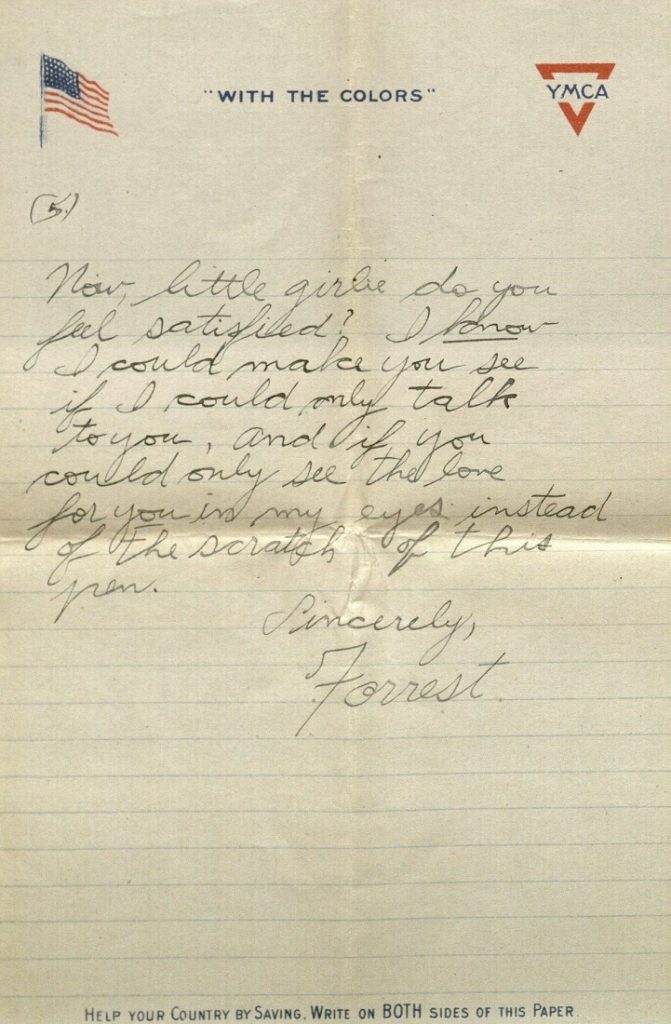 "WITH THE COLORS"
YMCA
(5.)
Now, little girlie do you
feel satisfied? I know
I could make you see
if I could only talk
to you, and if you
could only see the love
for you in my eyes instead
of the scratch of this
pen.
Sincerely,
Forrest.
HELP YOUR COUNTRY BY SAVING. WRITE ON BOTH SIDES OF THIS PAPER